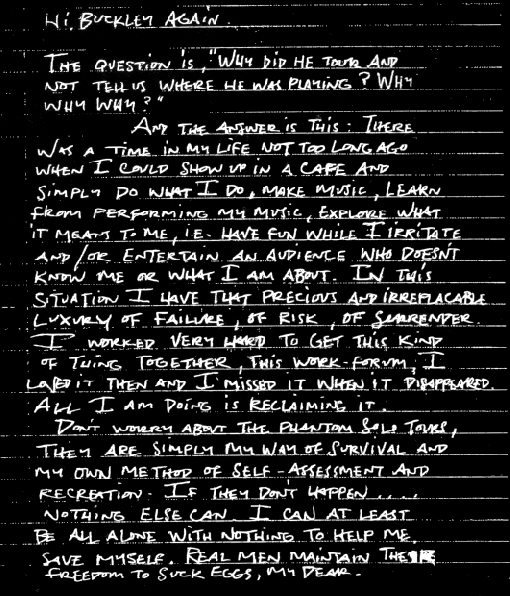 Hi, BUCKLEY AGAIN.
THE QUESTION IS, "WHY DID HE TOUR AND
NOT TELL US WHERE HE WAS PLAYING? WHY
WHY WHY?"
AND THE ANSWER IS THIS: THERE
WAS A TIME IN MY LIFE NOT TOO LONG AGO
WHEN I COULD SHOW UP IN A CAFE AND
SIMPLY DO WHAT I DO, MAKE MUSIC, LEARN
FROM PERFORMING MY MUSIC, EXPLORE WHAT
IT MEANS TO ME, IE. HAVE FUN WHILE I IRRITATE
AND/OR ENTERTAIN AN AUDIENCE WHO DOESN'T
KNOW ME OR WHAT I AM ABOUT. IN THIS
SITUATION I HAVE THAT PRECIOUS AND IRREPLACABLE
LUXURY OF FAILURE, OF RISK, OF SURRENDER.
I WORKED VERY HARD TO GET THIS KIND
OF THING TOGETHER, THIS WORK-FORUM, I
LOVED IT THEN AND I MISSED IT WHEN IT DISAPPEARED.
ALL I AM DOING IS RECLAIMING IT.
DON'T WORRY ABOUT THE PHANTOM SOLO TOURS,
THEY ARE SIMPLY MY WAY OF SURVIVAL AND
MY OWN METHOD OF SELF-ASSESSMENT AND
RECREATION. IF THEY DON'T HAPPEN....
NOTHING ELSE CAN. I CAN AT LEAST
BE ALL ALONE WITH NOTHING TO HELP ME.
SAVE MYSELF. REAL MEN MAINTAIN THE
FREEDOM TO SUCK EGGS, MY DEAR.